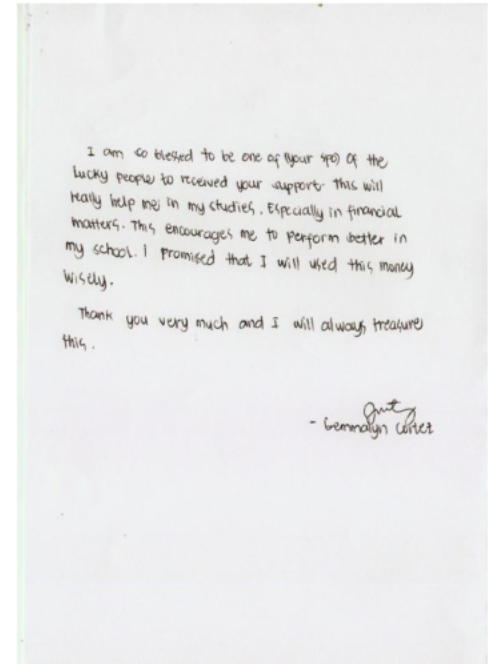 I am so blessed to be one of (your spo) of the
lucky people to received your support. This will
really help me, in my studies. Especially in financial
matters. This encourages me to perform better in
my school. I promised that I will used this money
wisely.
Thank you very much and I will always treasure
this.
- Gemmalyn Cortez